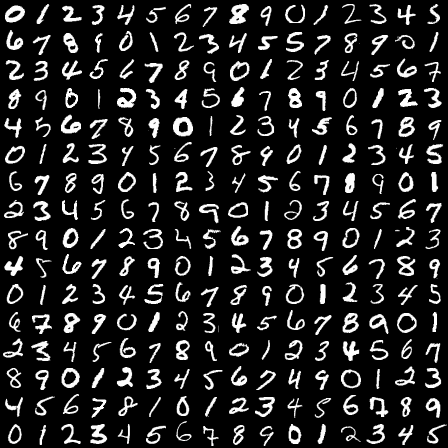 0 1 2 3 4 5 6 7 8 9 0 1 2 3 4 5
6 7 8 9 0 1 2 3 4 5 5 7 8 9 0 1
2 3 4 5 6 7 8 9 0 1 2 3 4 5 6 7
8 9 0 1 2 3 4 5 6 7 8 9 0 1 2 3
4 5 6 7 8 9 0 1 2 3 4 5 6 7 8 9
0 1 2 3 4 5 6 7 8 9 0 1 2 3 4 5
6 7 8 9 0 1 2 3 4 5 6 7 8 9 0 1
2 3 4 5 6 7 8 9 0 1 2 3 4 5 6 7
8 9 0 1 2 3 4 5 6 7 8 9 0 1 2 3
4 5 6 7 8 9 0 1 2 3 4 5 6 7 8 9
0 1 2 3 4 5 6 7 8 9 0 1 2 3 4 5
6 7 8 9 0 1 2 3 4 5 6 7 8 9 0 1
2 3 4 5 6 7 8 9 0 1 2 3 4 5 6 7
8 9 0 1 2 3 4 5 6 7 4 9 0 1 2 3
4 5 6 7 8 1 0 1 2 3 4 5 6 7 8 9
0 1 2 3 4 5 6 7 8 9 0 1 2 3 4 5